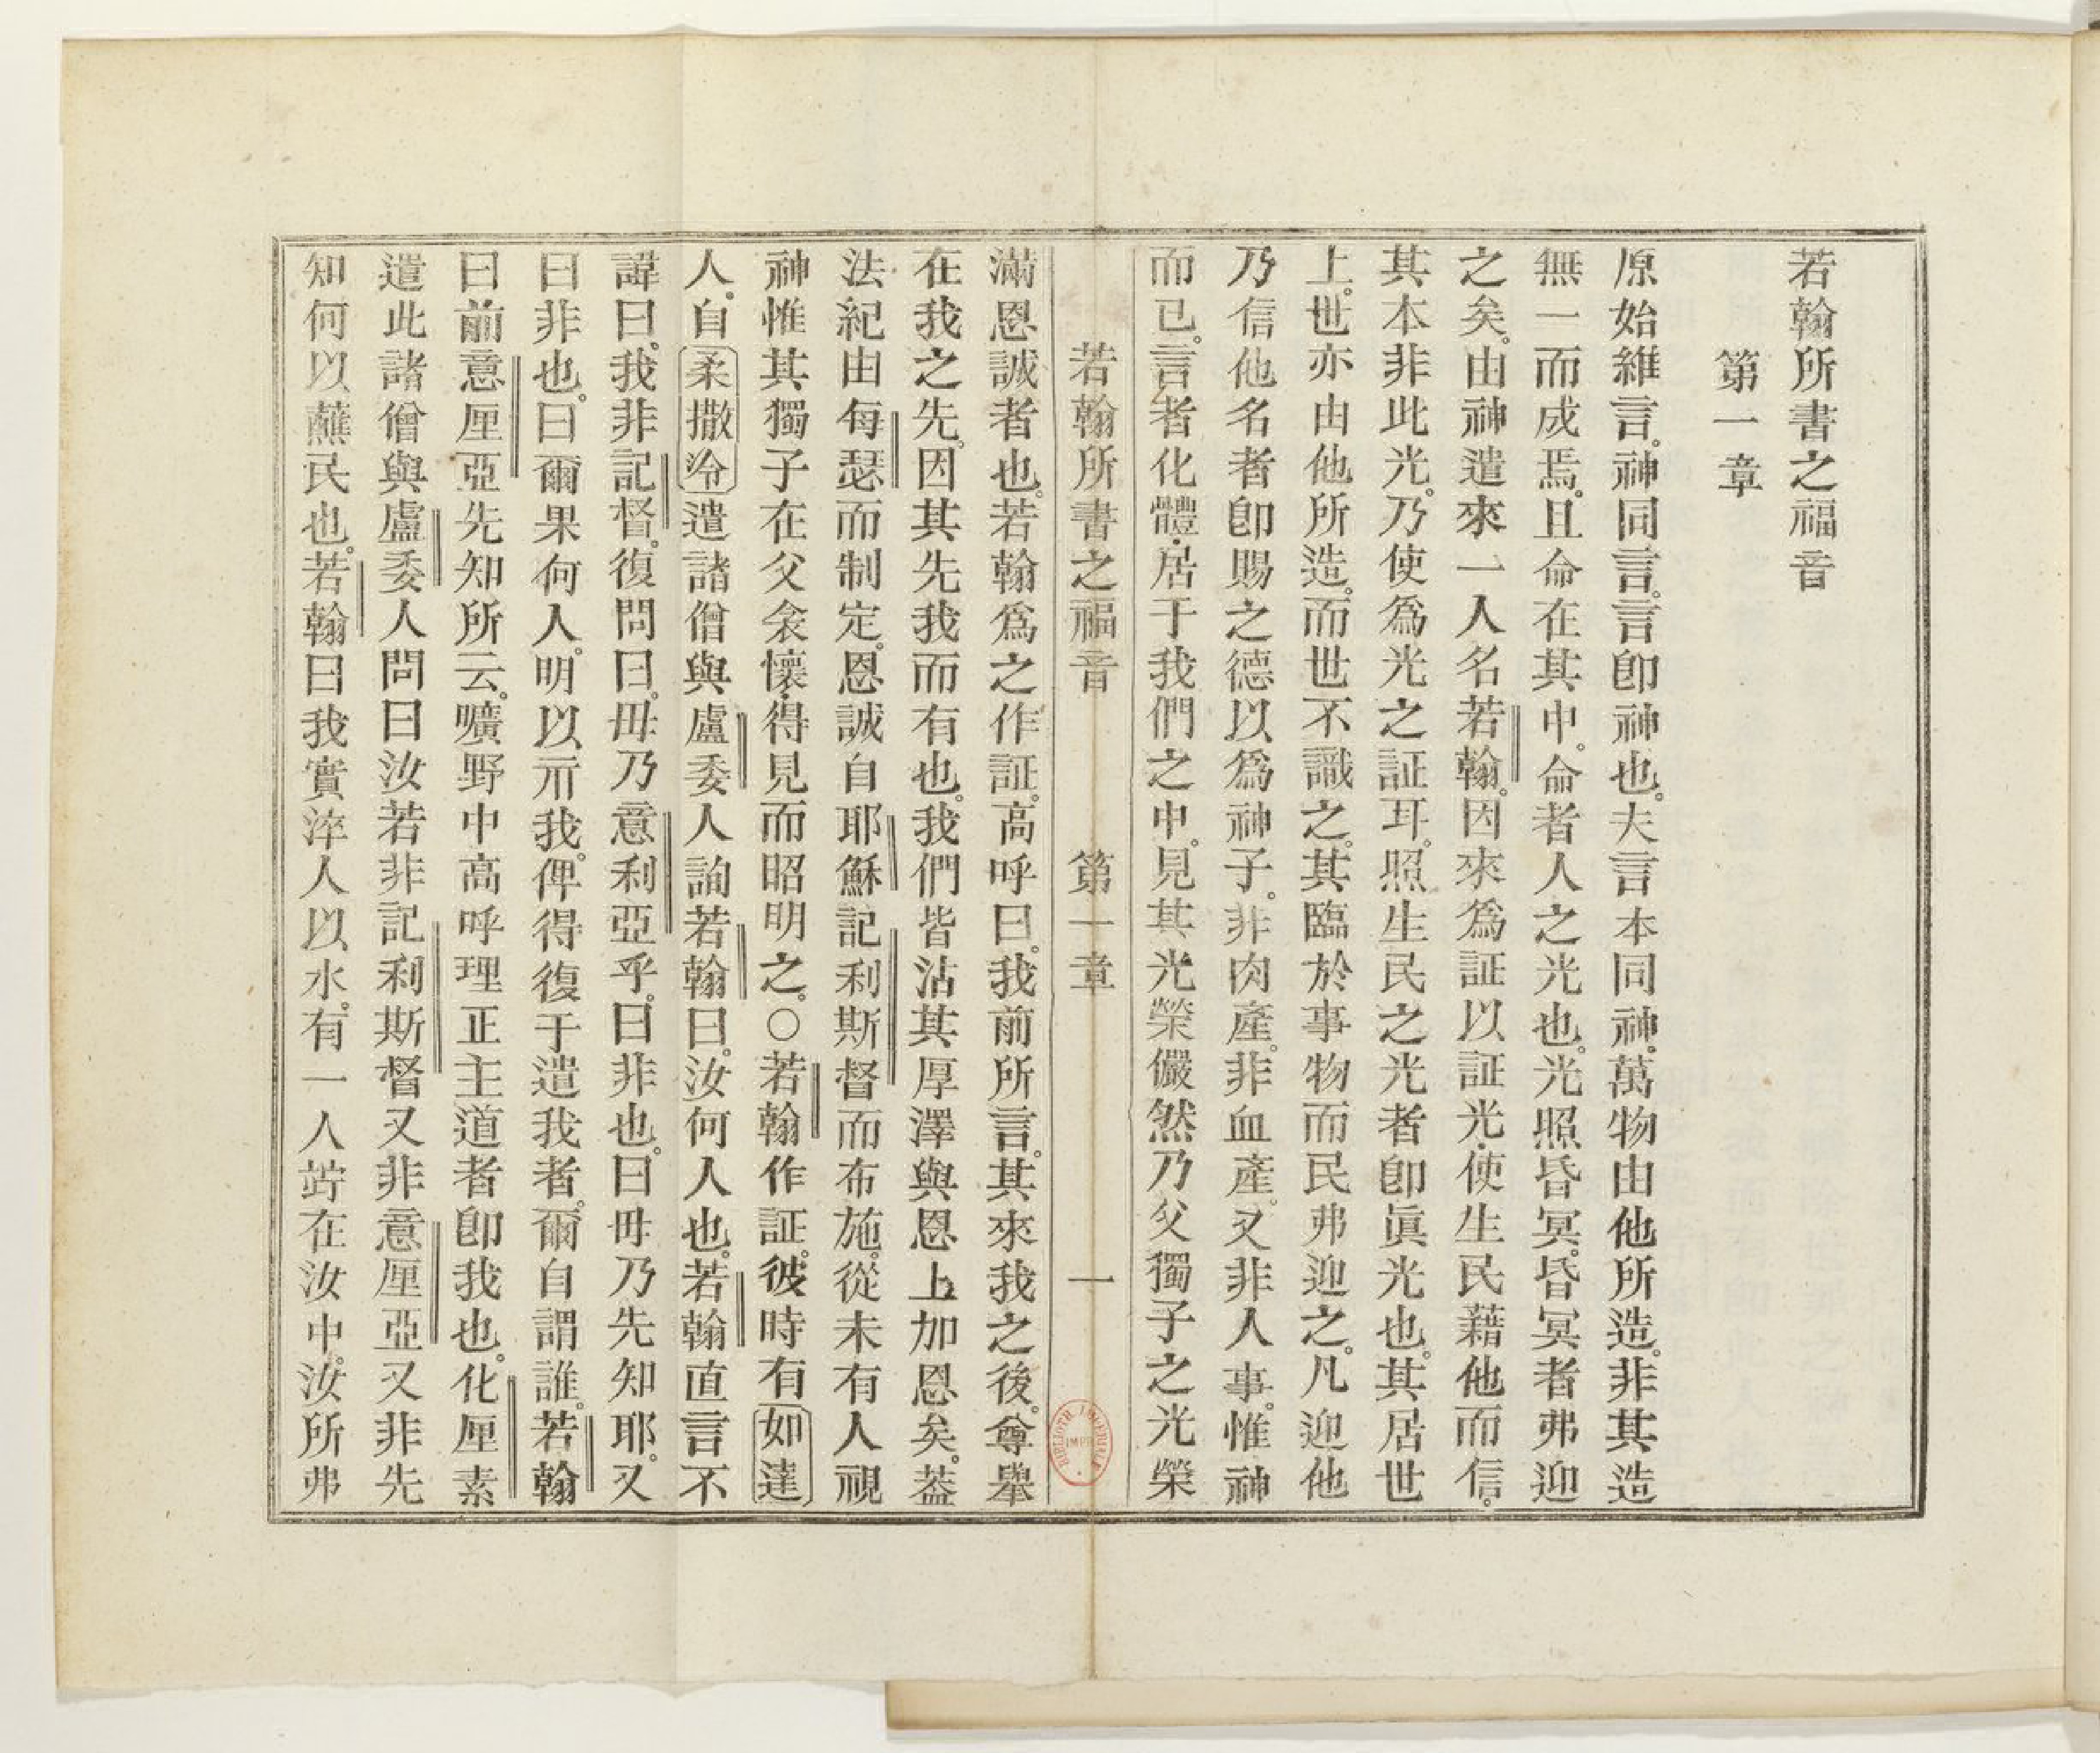 若翰所書之福音
第一章
原始維言。神同言。言卽神也。夫言本同神。萬物由他所造。非其造
無一而成焉。且命在其中。命者人之光也。光照昏冥。昏冥者弗迎
之矣。由神遣來一人名若翰。因來爲証以証光。使生民藉他而信。
其本非此光。乃使爲光之証耳。照生民之光者卽眞光也。其居世
上。世亦由他所造。而世不識之。其臨於事物而民弗迎之。凡迎他
乃信他名者卽賜之德以爲神子。非肉產。非血產。又非人事。惟神
而已。言者化體。居于我們之中。見其光榮儼然乃父獨子之光榮
若翰所書之福音 第一章 一
滿恩誠者也。若翰爲之作証。高呼曰。我前所言。其來我之後。尊舉
在我之先。因其先我而有也。我們皆沾其厚澤與恩上加恩矣。葢
法紀由每瑟而制定。恩誠自耶穌記利斯督而布施。從未有人視
神惟其獨子在父衾懷。得見而昭明之。○若翰作証。彼時有如達
人。自柔撒冷遣諸僧與盧委人詢若翰曰。汝何人也。若翰直言不
諱曰。我非記督。復問曰。毋乃意利亞乎。曰非也。曰毋乃先知耶。又
曰非也。曰爾果何人。明以示我。俾得復于遣我者。爾自謂誰。若翰
曰前意厘亞先知所云。嚝野中高呼理正主道者卽我也。化厘素
遣此諸僧與盧委人問曰汝若非記利斯督又非意厘亞又非先
知何以蘸民也。若翰曰我實淬人以水。有一人竚在汝中。汝所弗
BIBLIOTH. IMPERIALE IMP.